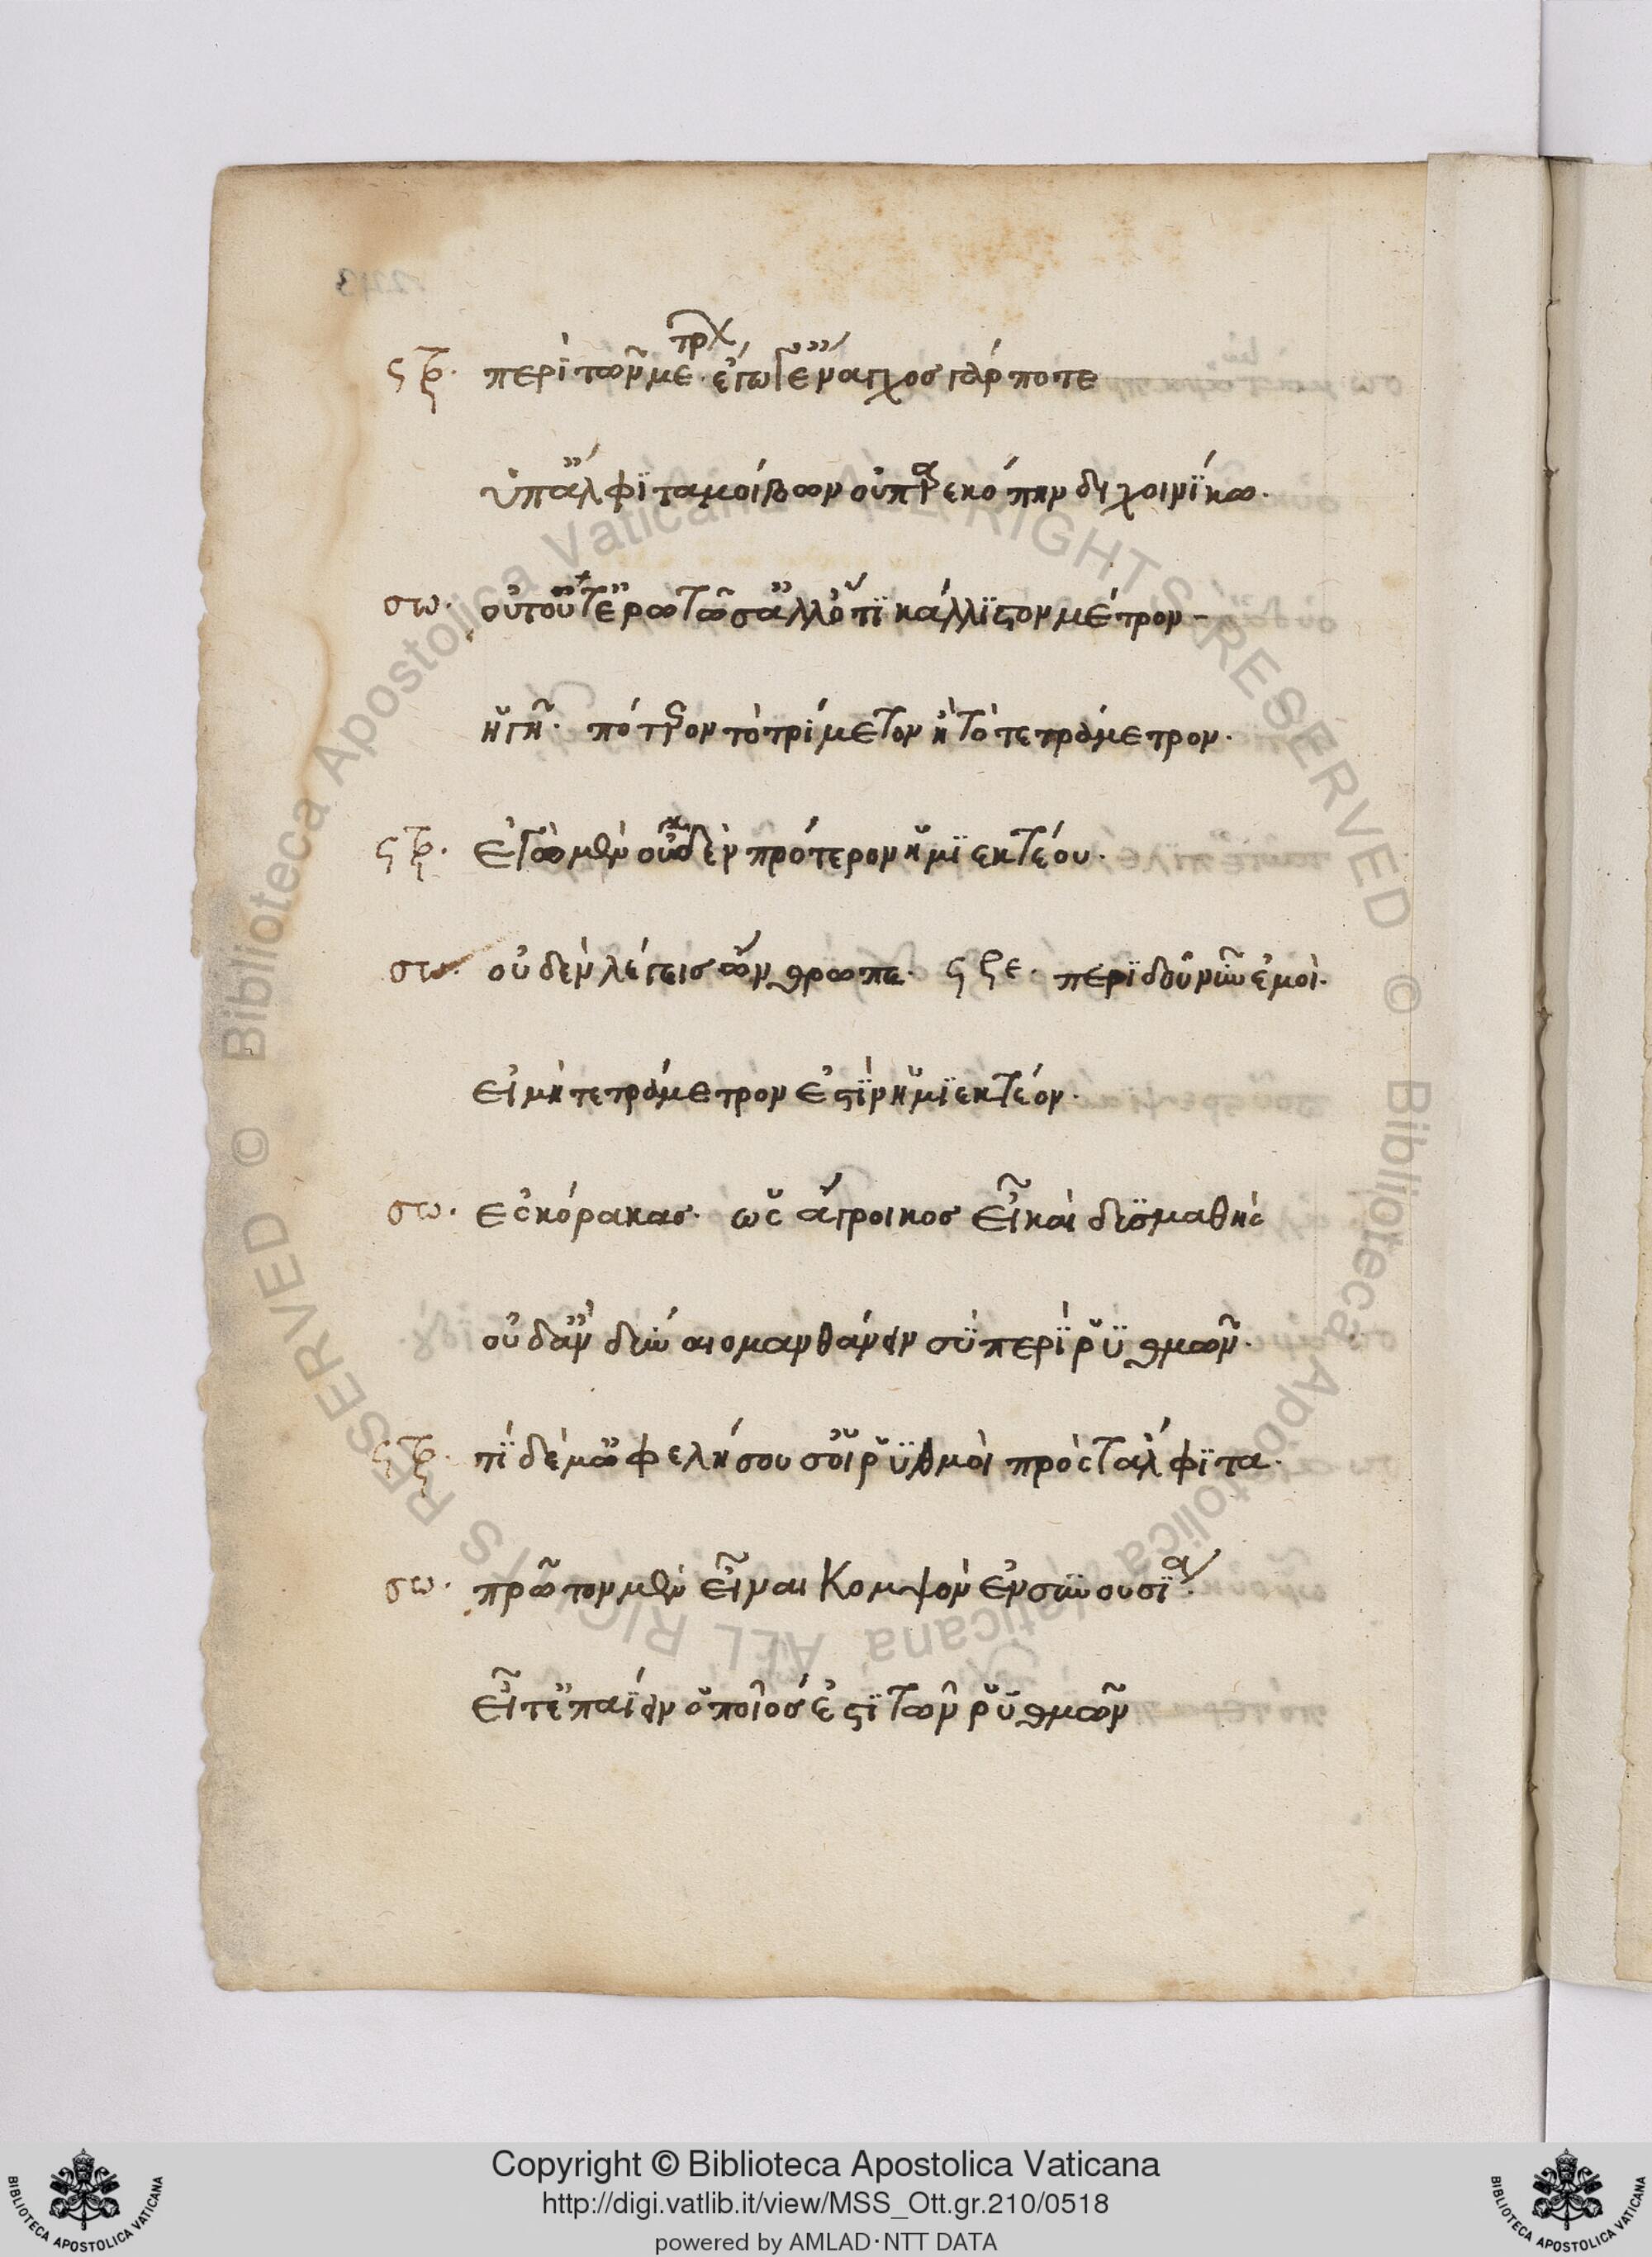 στρ. περὶ τῶν με τρ. ἔγωγ' ἔναγχος γάρ ποτε
ὑπ' ἀλφιταμοιβῶν οὐ παρεκόπην διχοινίκω.
σω. οὐ τοῦτ' ἐρωτῶ σ' ἀλλ' ὅτι κάλλιστον μέτρον
ἡγῆ. πότερον τὸ τρίμετον ἢ τὸ τετράμετρον.
στρ. ἐγὼ μὲν οὐδὲν πρότερον ἡμιεκτέου.
σω. οὐδὲν λέγεις ὤνθρωπε. στρε. περίδου νῦν ἐμοὶ.
εἰ μὴ τετράμετρον ἐστὶν ἡμιεκτέον.
σω. ἐς κόρακας. ὡς ἄγροικος εἶ καὶ δυσμαθὴς
οὐδ' ἂν δύναιο μανθάνειν σὺ περὶ ῥυθμῶν.
στρ. τί δέ μ' ὠφελήσουσ' οἱ ῥυθμοὶ πρὸς τἄλφιτα.
σω. πρῶτον μὲν εἶναι κομψὸν ἐν συνουσία.
εἶτ' ἐπαΐειν ὁποῖός ἐστι τῶν ῥυθμῶν
Copyright © Biblioteca Apostolica Vaticana
http://digi.vatlib.it/view/MSS_Ott.gr.210/0518
powered by AMLAD·NTT DATA
© Biblioteca Apostolica Vaticana, ALL RIGHTS RESERVED
BIBLIOTECA APOSTOLICA VATICANA
BIBLIOTECA APOSTOLICA VATICANA